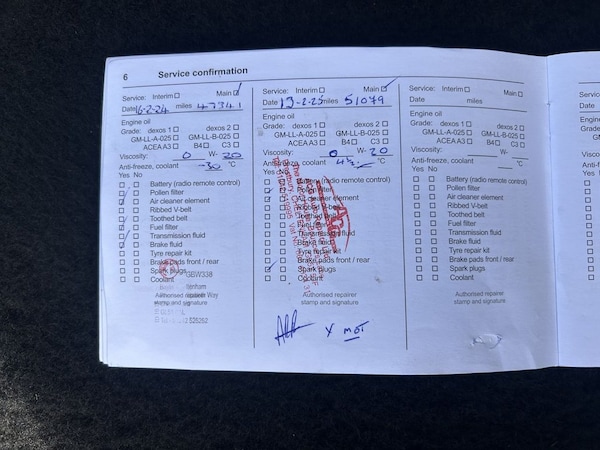 6 Service confirmation
Service: Interim Main
Date 16-2-24 miles 47341
Engine oil
Grade: dexos 1 dexos 2
GM-LL-A-025 GM-LL-B-025
ACEA A3 B4 C3
Viscosity: 0 W- 20
Anti-freeze, coolant -30 °C
Yes No
Battery (radio remote control)
Pollen filter
Air cleaner element
Ribbed V-belt
Toothed belt
Fuel filter
Transmission fluid
Brake fluid
Tyre repair kit
Brake pads front / rear
Spark plugs
Coolant
GBW338
Authorised repairer
stamp and signature
Service: Interim Main
Date 13-2-25 miles 51079
Engine oil
Grade: dexos 1 dexos 2
GM-LL-A-025 GM-LL-B-025
ACEA A3 B4 C3
Viscosity: 0 W- 20
coolant °C
Yes No
Battery (radio remote control)
Pollen filter
Air cleaner element
Ribbed V-belt
Toothed belt
Fuel filter
Transmission fluid
Brake fluid
Tyre repair kit
Brake pads front / rear
Spark plugs
Coolant
Authorised repairer
stamp and signature
MOT
Service: Interim Main
Date miles
Engine oil
Grade: dexos 1 dexos 2
GM-LL-A-025 GM-LL-B-025
ACEA A3 B4 C3
Viscosity: W-
Anti-freeze, coolant °C
Yes No
Battery (radio remote control)
Pollen filter
Air cleaner element
Ribbed V-belt
Toothed belt
Fuel filter
Transmission fluid
Brake fluid
Tyre repair kit
Brake pads front / rear
Spark plugs
Coolant
Authorised repairer
stamp and signature